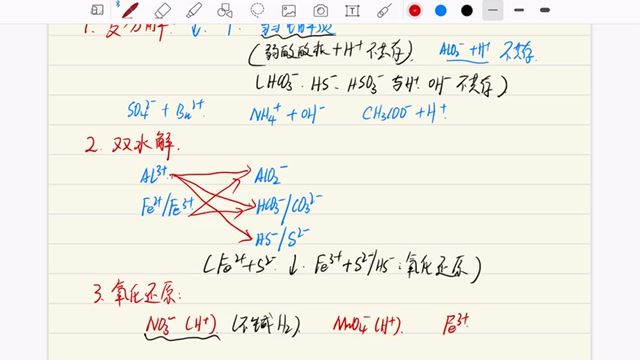 1. 复分解: ↓ ↑ 弱电解质
(弱酸酸根+H⁺不共存) AlO₂⁻+H⁺ 不共存.
(HCO₃⁻. HS⁻. HSO₃⁻ 与H⁺. OH⁻ 不共存)
SO₄²⁻+Ba²⁺ NH₄⁺+OH⁻ CH₃COO⁻+H⁺
2. 双水解.
Al³⁺ AlO₂⁻
Fe²⁺/Fe³⁺ HCO₃⁻/CO₃²⁻
HS⁻/S²⁻
(Fe²⁺+S²⁻ ↓. Fe³⁺+S²⁻/HS⁻:氧化还原)
3. 氧化还原:
NO₃⁻(H⁺) (不生成H₂). MnO₄⁻(H⁺). Fe³⁺